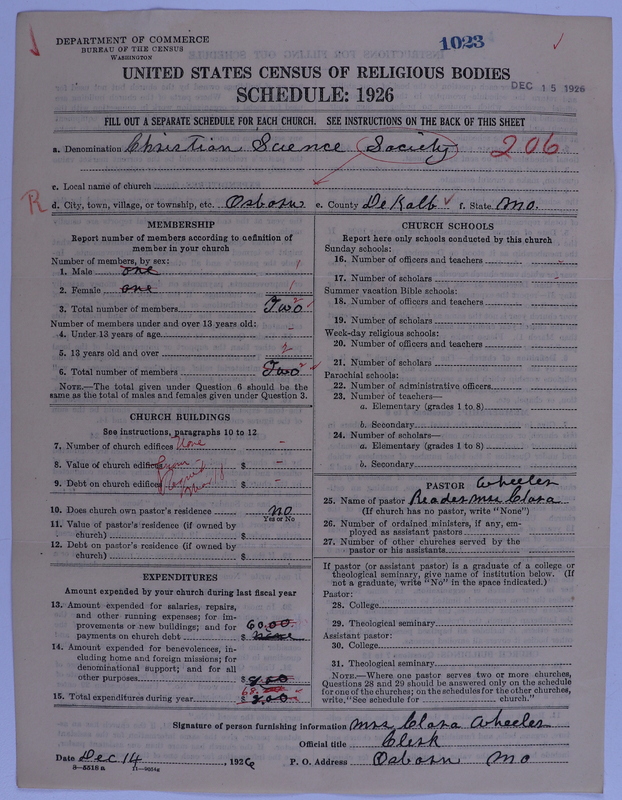 DEPARTMENT OF COMMERCE
BUREAU OF THE CENSUS
WASHINGTON
1023
UNITED STATES CENSUS OF RELIGIOUS BODIES
DEC 15 1926
SCHEDULE: 1926
FILL OUT A SEPARATE SCHEDULE FOR EACH CHURCH. SEE INSTRUCTIONS ON THE BACK OF THIS SHEET
a. Denomination Christian Science Society 206
c. Local name of church
R d. City, town, village, or township, etc. Osborn. e. County DeKalb f. State Mo.
MEMBERSHIP
Report number of members according to definition of
member in your church
Number of members, by sex:
1. Male one 1
2. Female one 1
3. Total number of members Two 2
Number of members under and over 13 years old:
4. Under 13 years of age -
5. 13 years old and over 2
6. Total number of members Two 2
NOTE.—The total given under Question 6 should be the
same as the total of males and females given under Question 3.
CHURCH BUILDINGS
See instructions, paragraphs 10 to 12
7. Number of church edifices None -
8. Value of church edifices $ -
9. Debt on church edifices $ -
10. Does church own pastor's residence no
Yes or No
11. Value of pastor's residence (if owned by
church) $
12. Debt on pastor's residence (if owned by
church) $
EXPENDITURES
Amount expended by your church during last fiscal year
13. Amount expended for salaries, repairs,
and other running expenses; for im-
provements or new buildings; and for 60.00
payments on church debt $ none
14. Amount expended for benevolences, in-
cluding home and foreign missions; for
denominational support; and for all
other purposes $ 8.00
15. Total expenditures during year $ 68
CHURCH SCHOOLS
Report here only schools conducted by this church
Sunday schools:
16. Number of officers and teachers -
17. Number of scholars -
Summer vacation Bible schools:
18. Number of officers and teachers
19. Number of scholars
Week-day religious schools:
20. Number of officers and teachers
21. Number of scholars
Parochial schools:
22. Number of administrative officers
23. Number of teachers—
a. Elementary (grades 1 to 8)
b. Secondary
24. Number of scholars—
a. Elementary (grades 1 to 8)
b. Secondary
PASTOR Wheeler
25. Name of pastor Reader Mrs Clara
(If church has no pastor, write "None")
26. Number of ordained ministers, if any, em-
ployed as assistant pastors
27. Number of other churches served by the
pastor or his assistants
If pastor (or assistant pastor) is a graduate of a college or
theological seminary, give name of institution below. (If
not a graduate, write "No" in the space indicated.)
Pastor:
28. College
29. Theological seminary
Assistant pastor:
30. College
31. Theological seminary
NOTE.—Where one pastor serves two or more churches,
Questions 28 and 29 should be answered only on the schedule
for one of the churches; on the schedules for the other churches,
write, "See schedule for church."
Signature of person furnishing information Mrs Clara Wheeler
Official title Clerk
Date Dec 14, 1926 P. O. Address Osborn Mo